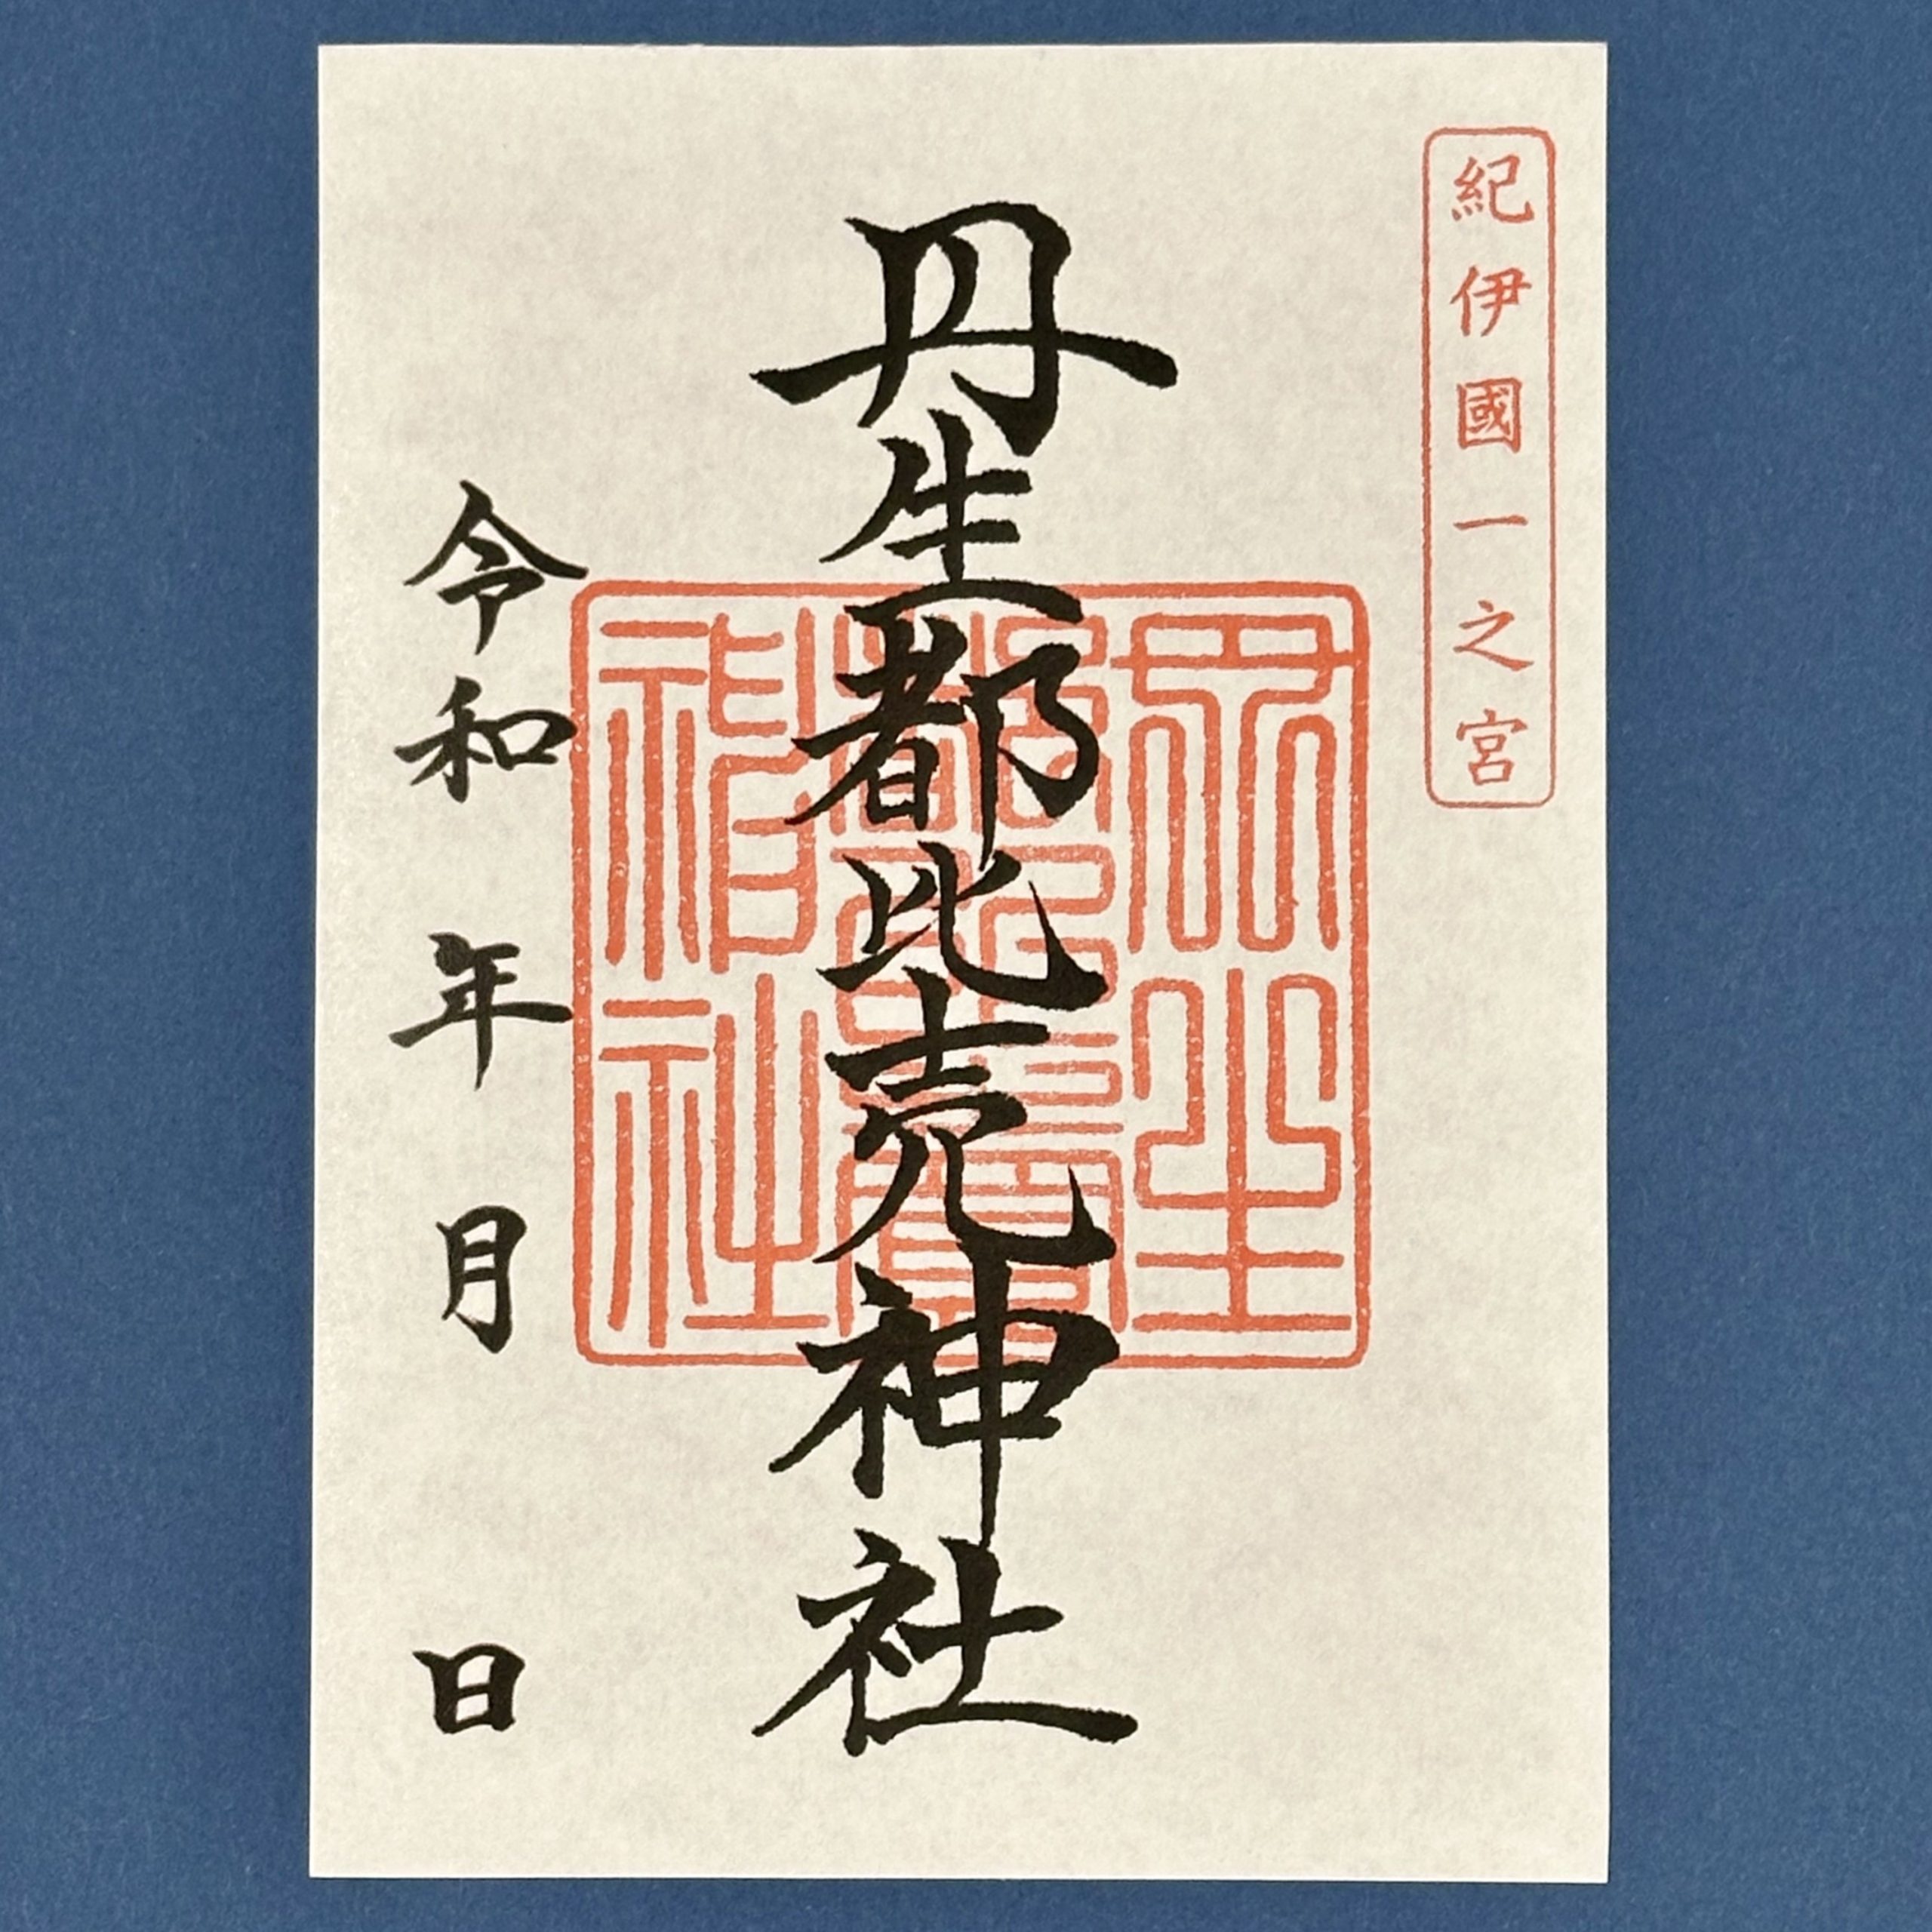 紀伊國一之宮
丹生都比売神社
丹生
都比賣
神社
令和 年 月 日